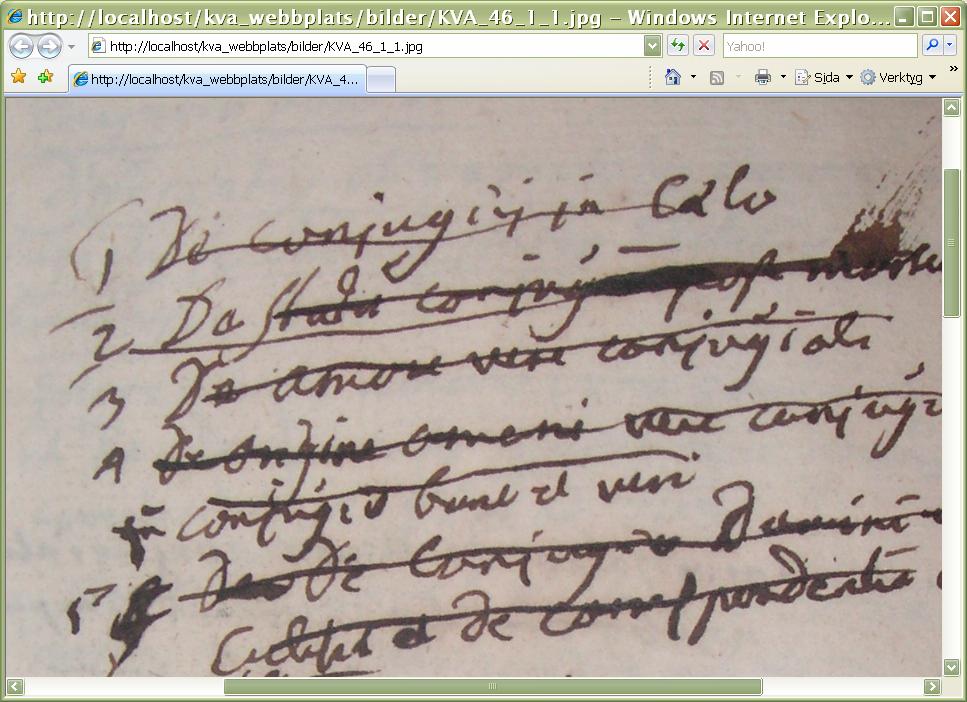 http://localhost/kva_webbplats/bilder/KVA_46_1_1.jpg – Windows Internet Explo...
http://localhost/kva_webbplats/bilder/KVA_46_1_1.jpg
Yahoo!
http://localhost/kva_webbplats/bilder/KVA_4...
Sida
Verktyg
»
1 De conjugijs in Cælo
2 De statu conjugi post mortem
3 De amore vere conjugiali
4 De origine amoris vere conjugi
conjugio boni et veri
5 De Conjugio Domini
et De correspondentia